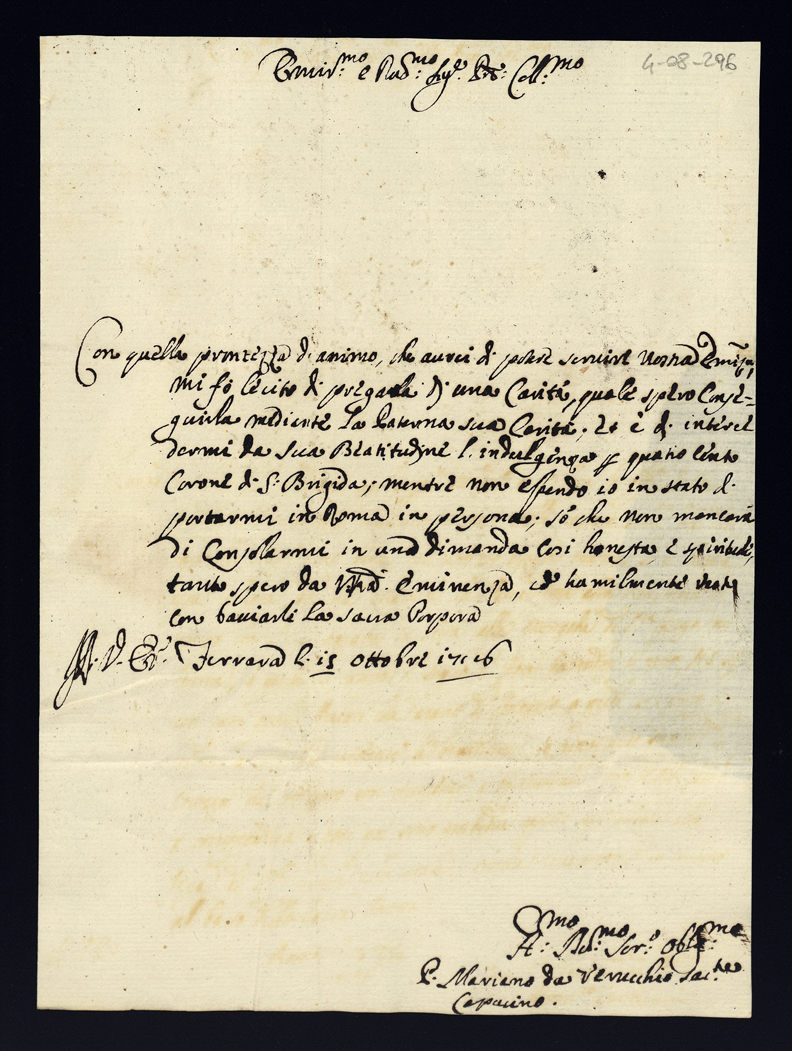 Emin.mo e Rud.mo Sig.e P.e: Coll.mo
4-08-296
Con quella prontezza d'animo, che aurei di potere seruire Uostra Emi[n]za,
mi fò lécito di pregarla di una Carità, quale spero Conse=
guirla mediente la Paterna sua Carità; Et è di interce
dermi da sua Beatitudine l'indulgenza p quatro cento
Corone di S: Brigida; mentre non essendo io in stato di
portarmi in Roma in persona; sò che non mancarà
di Consolarmi in una dimanda cosi honesta, è spirituale,
tanto spero da Vra Eminenza, ed humilmente resto
con bacciarli la sacra Porpora
D. V. E. Ferrara l. 15 ottobre
H: Deu.mo Ser.o Obl.mo
P. Mariano da Verucchio Sac.te
Capucino.